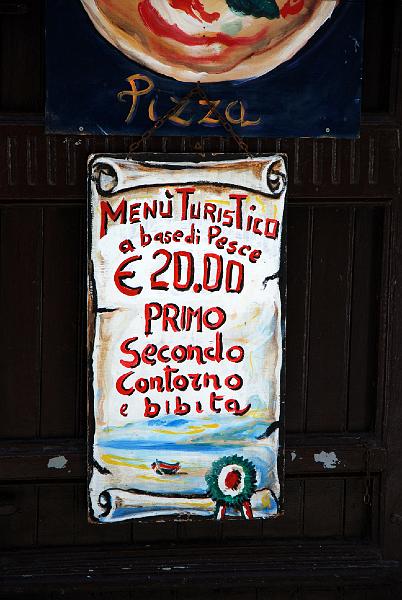 Pizza
MENÙ TURISTICO
a base di Pesce
€ 20.00
PRIMO
Secondo
Contorno
e bibita